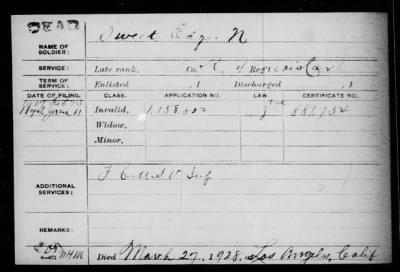 DEAD
NAME OF SOLDIER: Sweet, Edgar N
SERVICE: Late rank, Co. C, 4 Reg't Wis Cav
TERM OF SERVICE: Enlisted , 1 Discharged , 1
DATE OF FILING. CLASS. APPLICATION NO. LAW. CERTIFICATE NO.
Invalid, 1,158,802 881,732
Widow,
Minor,
ADDITIONAL SERVICES: F U.S.V. Inf
REMARKS:
Died March 27, 1928, Los Angeles, Calif